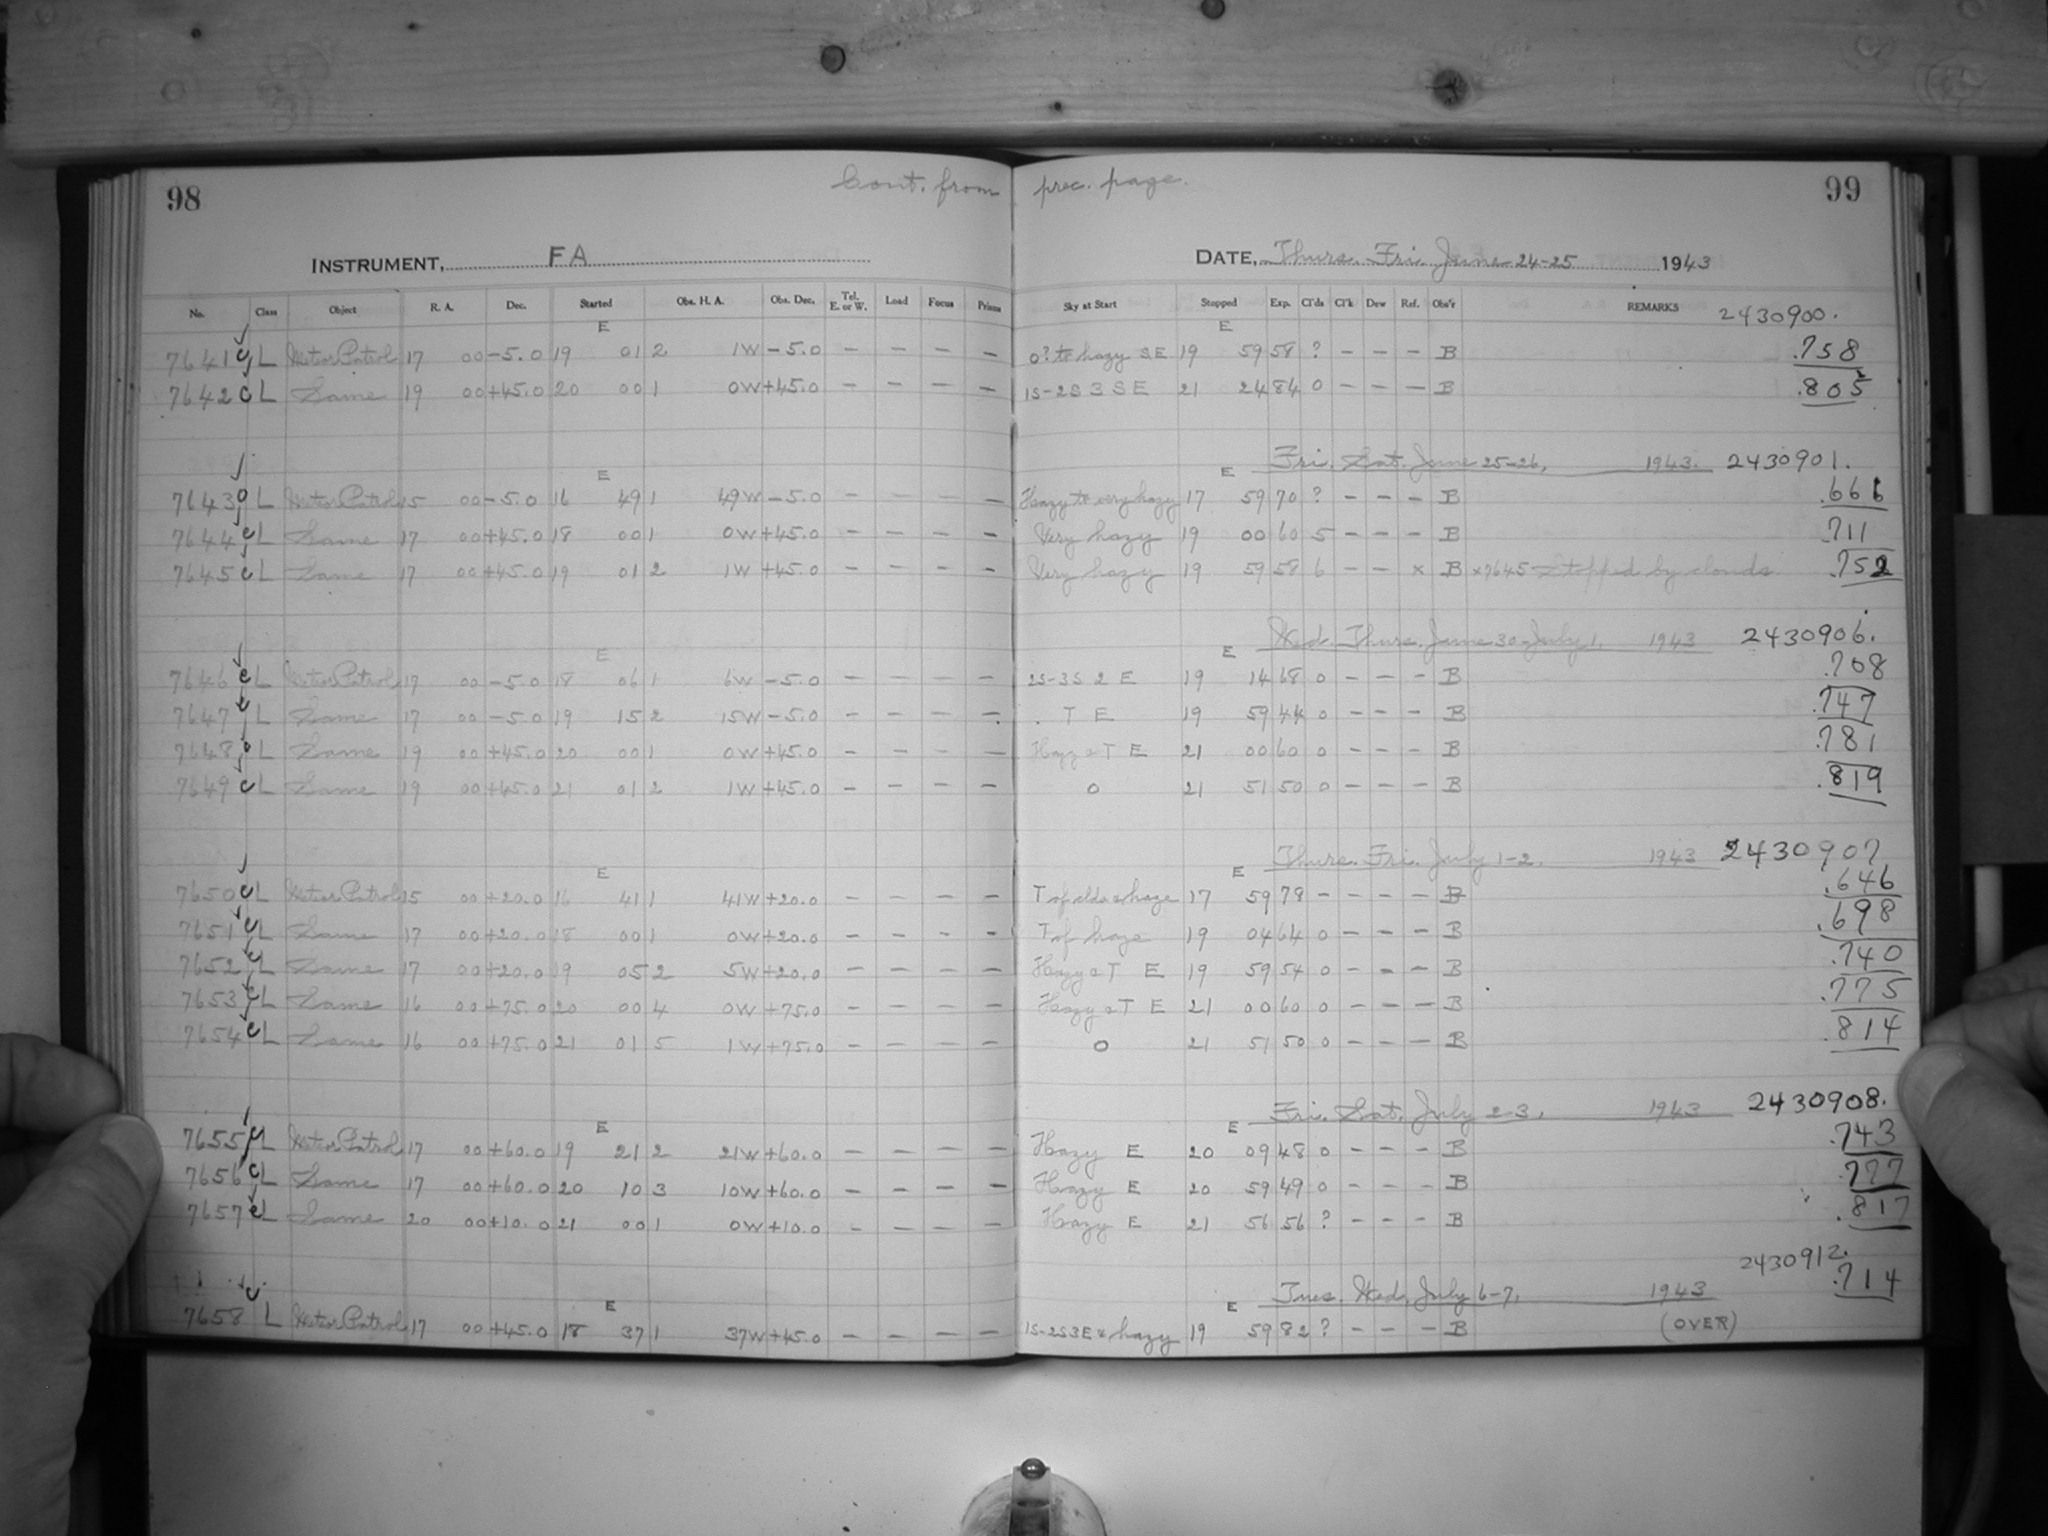 98 Cont. from prec. page. 99
INSTRUMENT, FA DATE, Thurs. Fri. June 24-25 1943
No. Class Object R. A. Dec. Started Obs. H. A. Obs. Dec. Tel. E. or W. Load Focus Prism Sky at Start Stopped Exp. Cl'ds Cl'k Dew Ref. Obs'r REMARKS 2430900.
E E
7641 c L Meteor Patrol 17 00 -5.0 19 01 2 1W -5.0 — — — — 0? to hazy SE 19 59 58 ? – – – B .758
7642 c L Same 19 00 +45.0 20 00 1 0W +45.0 — — — — 1S-2S 3 S E 21 24 84 0 – – – B .805
Fri. Sat. June 25-26, 1943. 2430901.
E E
7643 c L Meteor Patrol 15 00 -5.0 16 49 1 49W -5.0 — — — — Hazy to very hazy 17 59 70 ? – – – B .666
7644 c L Same 17 00 +45.0 18 00 1 0W +45.0 — — — — Very hazy 19 00 60 5 – – – B .711
7645 c L Same 17 00 +45.0 19 01 2 1W +45.0 — — — — Very hazy 19 59 58 6 – – x B x7645 Stopped by clouds .752
Wed. Thurs. June 30-July 1, 1943 2430906.
E E
7646 c L Meteor Patrol 17 00 -5.0 18 06 1 6W -5.0 — — — — 2S-3S 2 E 19 14 68 0 – – – B .708
7647 c L Same 17 00 -5.0 19 15 2 15W -5.0 — — — — T E 19 59 44 0 – – – B .747
7648 c L Same 19 00 +45.0 20 00 1 0W +45.0 — — — — Hazy & T E 21 00 60 0 – – – B .781
7649 c L Same 19 00 +45.0 21 01 2 1W +45.0 — — — — 0 21 51 50 0 – – – B .819
Thurs. Fri. July 1-2, 1943 2430907
E E
7650 c L Meteor Patrol 15 00 +20.0 16 41 1 41W +20.0 — — — — T of clds & haze 17 59 78 – – – – B .646
7651 c L Same 17 00 +20.0 18 00 1 0W +20.0 — — — — T of haze 19 04 64 0 – – – B .698
7652 c L Same 17 00 +20.0 19 05 2 5W +20.0 — — — — Hazy & T E 19 59 54 0 – – – B .740
7653 c L Same 16 00 +75.0 20 00 4 0W +75.0 — — — — Hazy & T E 21 00 60 0 – – – B .775
7654 c L Same 16 00 +75.0 21 01 5 1W +75.0 — — — — 0 21 51 50 0 – – – B .814
Fri. Sat. July 2-3, 1943 2430908.
E E
7655 c L Meteor Patrol 17 00 +60.0 19 21 2 21W +60.0 — — — — Hazy E 20 09 48 0 – – – B .743
7656 c L Same 17 00 +60.0 20 10 3 10W +60.0 — — — — Hazy E 20 59 49 0 – – – B .777
7657 c L Same 20 00 +10.0 21 00 1 0W +10.0 — — — — Hazy E 21 56 56 ? – – – B .817
2430912.
E E Tues. Wed. July 6-7, 1943 .714
7658 c L Meteor Patrol 17 00 +45.0 18 37 1 37W +45.0 — — — — 1S-2S3E & hazy 19 59 82 ? – – – B (OVER)